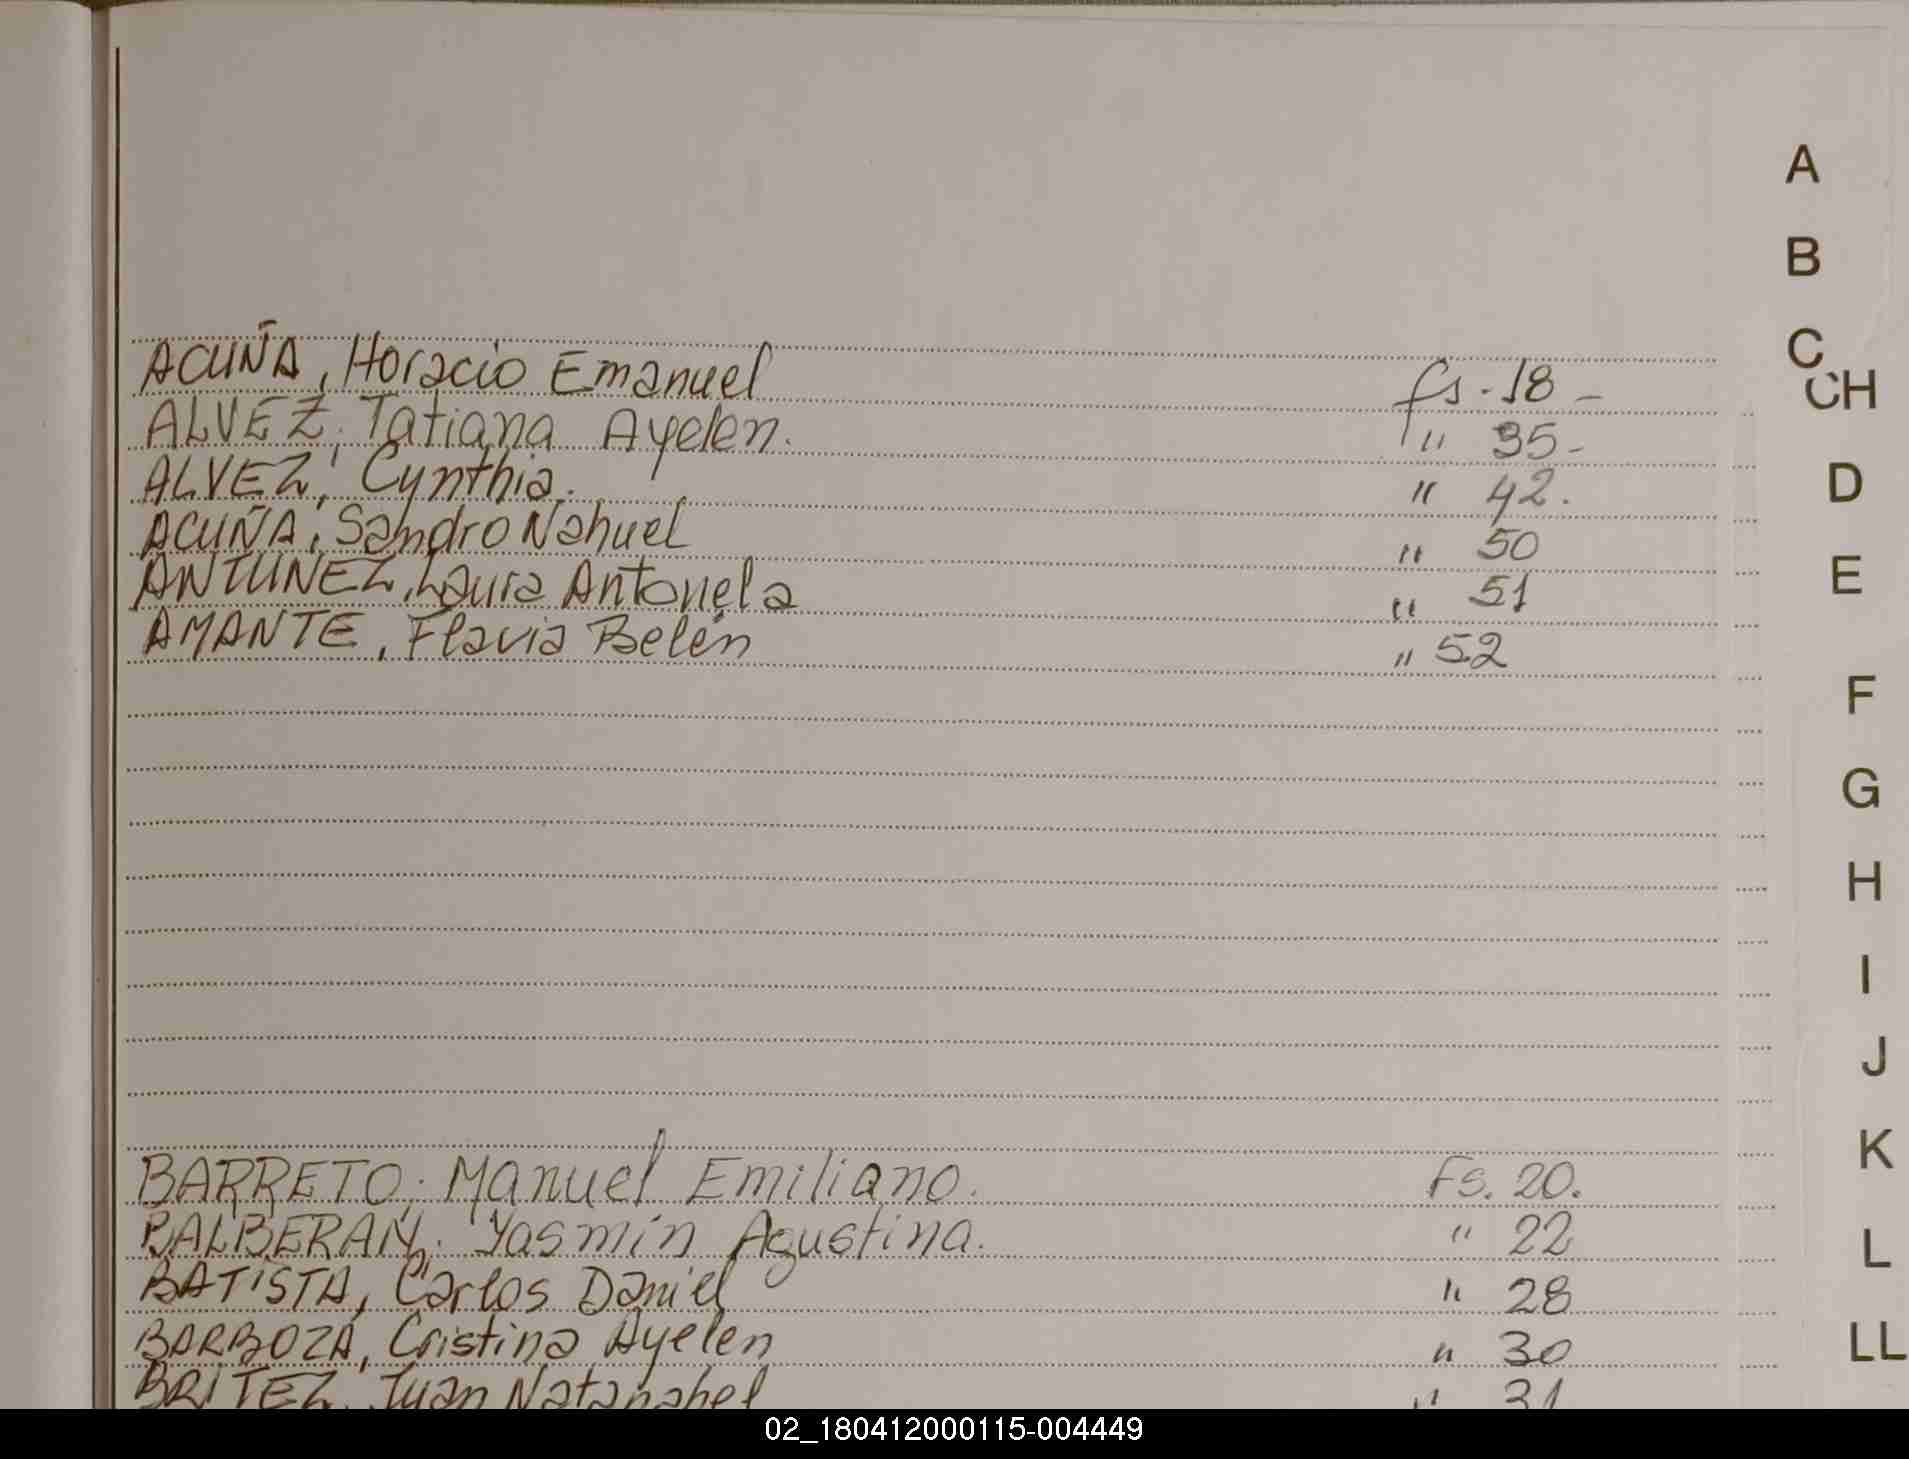 ACUÑA, Horacio Emanuel fs. 18 -
ALVEZ, Tatiana Ayelen. " 35 -
ALVEZ, Cynthia. " 42.
ACUÑA, Sandro Nahuel " 50
ANTUNEZ, Laura Antonela " 51
AMANTE, Flavia Belén " 52
BARRETO, Manuel Emiliano. Fs. 20.
BALBERAN, Yasmín Agustina. " 22
BATISTA, Carlos Daniel " 28
BARBOZA, Cristina Ayelen " 30
BRITEZ, Juan Natanahel " 31
A
B
C
CH
D
E
F
G
H
I
J
K
L
LL
02_180412000115-004449